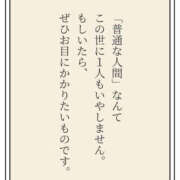 「普通な人間」なんて
この世に１人もいやしません。
もしいたら、
ぜひお目にかかりたいものです。